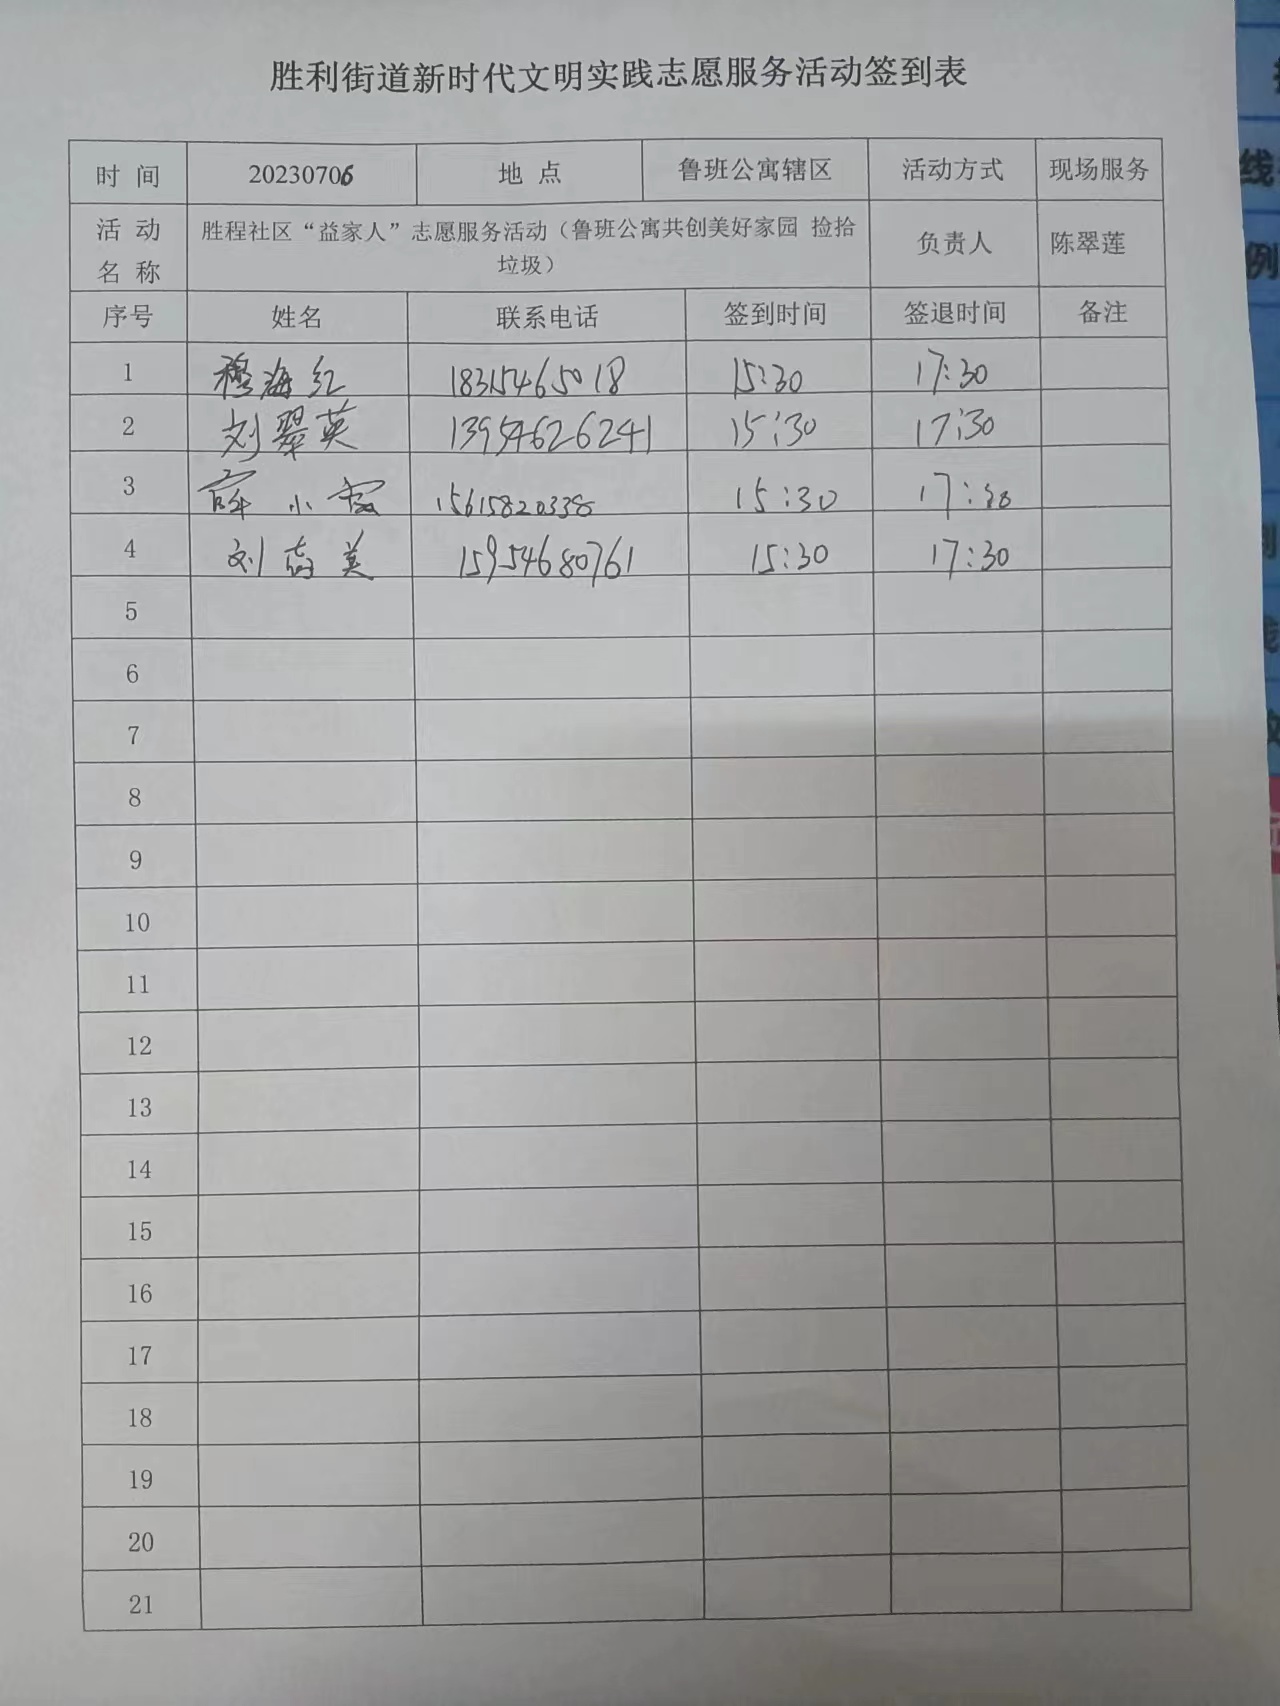 胜利街道新时代文明实践志愿服务活动签到表
时 间 20230706 地 点 鲁班公寓辖区 活动方式 现场服务
活 动 名 称 胜程社区“益家人”志愿服务活动（鲁班公寓共创美好家园 捡拾
垃圾） 负责人 陈翠莲
序号 姓名 联系电话 签到时间 签退时间 备注
1 穆海红 18315465018 15:30 17:30
2 刘翠英 13954626241 15:30 17:30
3 薛小霞 15615820338 15:30 17:30
4 刘 美 15954680761 15:30 17:30
5
6
7
8
9
10
11
12
13
14
15
16
17
18
19
20
21
线
例